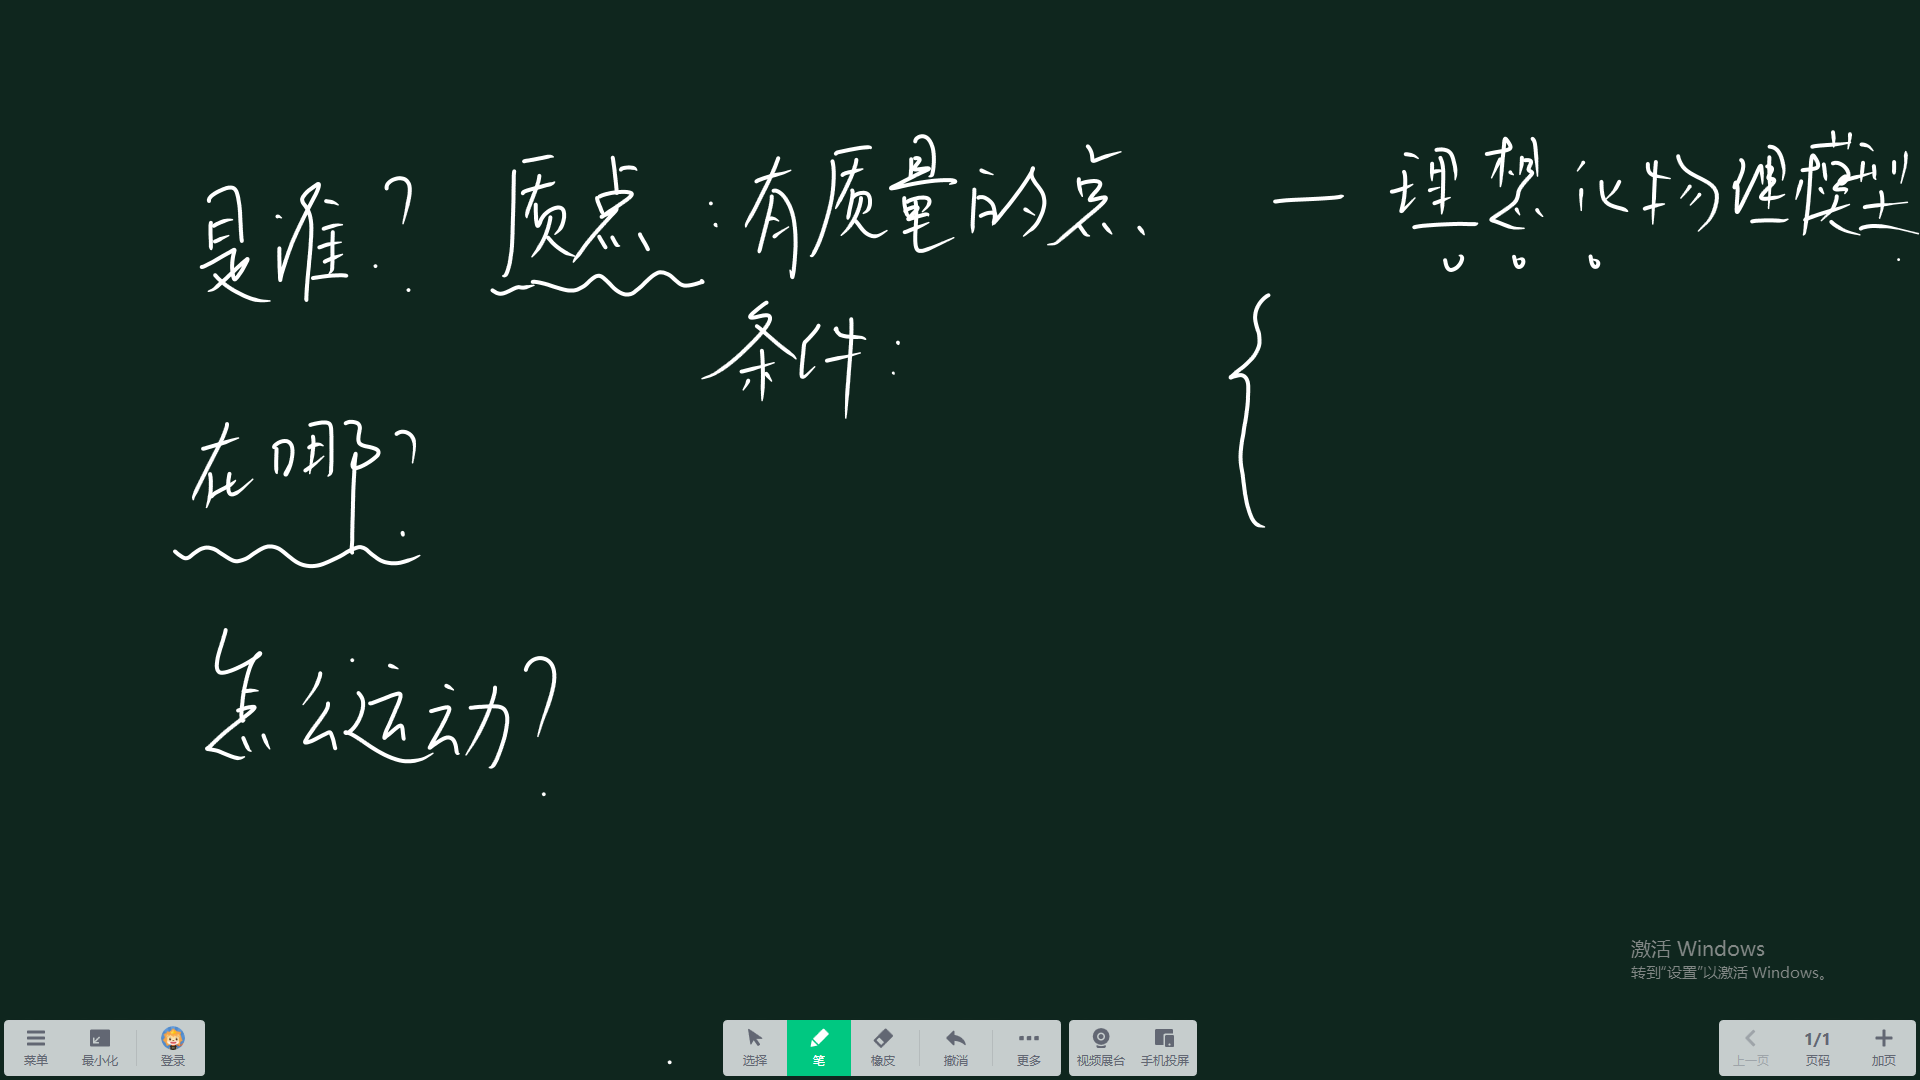 是谁? 质点:有质量的点、 — 理想化物理模型.
条件: {
在哪?
怎么运动?
激活 Windows
转到“设置”以激活 Windows。
菜单 最小化 登录 选择 笔 橡皮 撤消 更多 视频展台 手机投屏 上一页 1/1 页码 加页